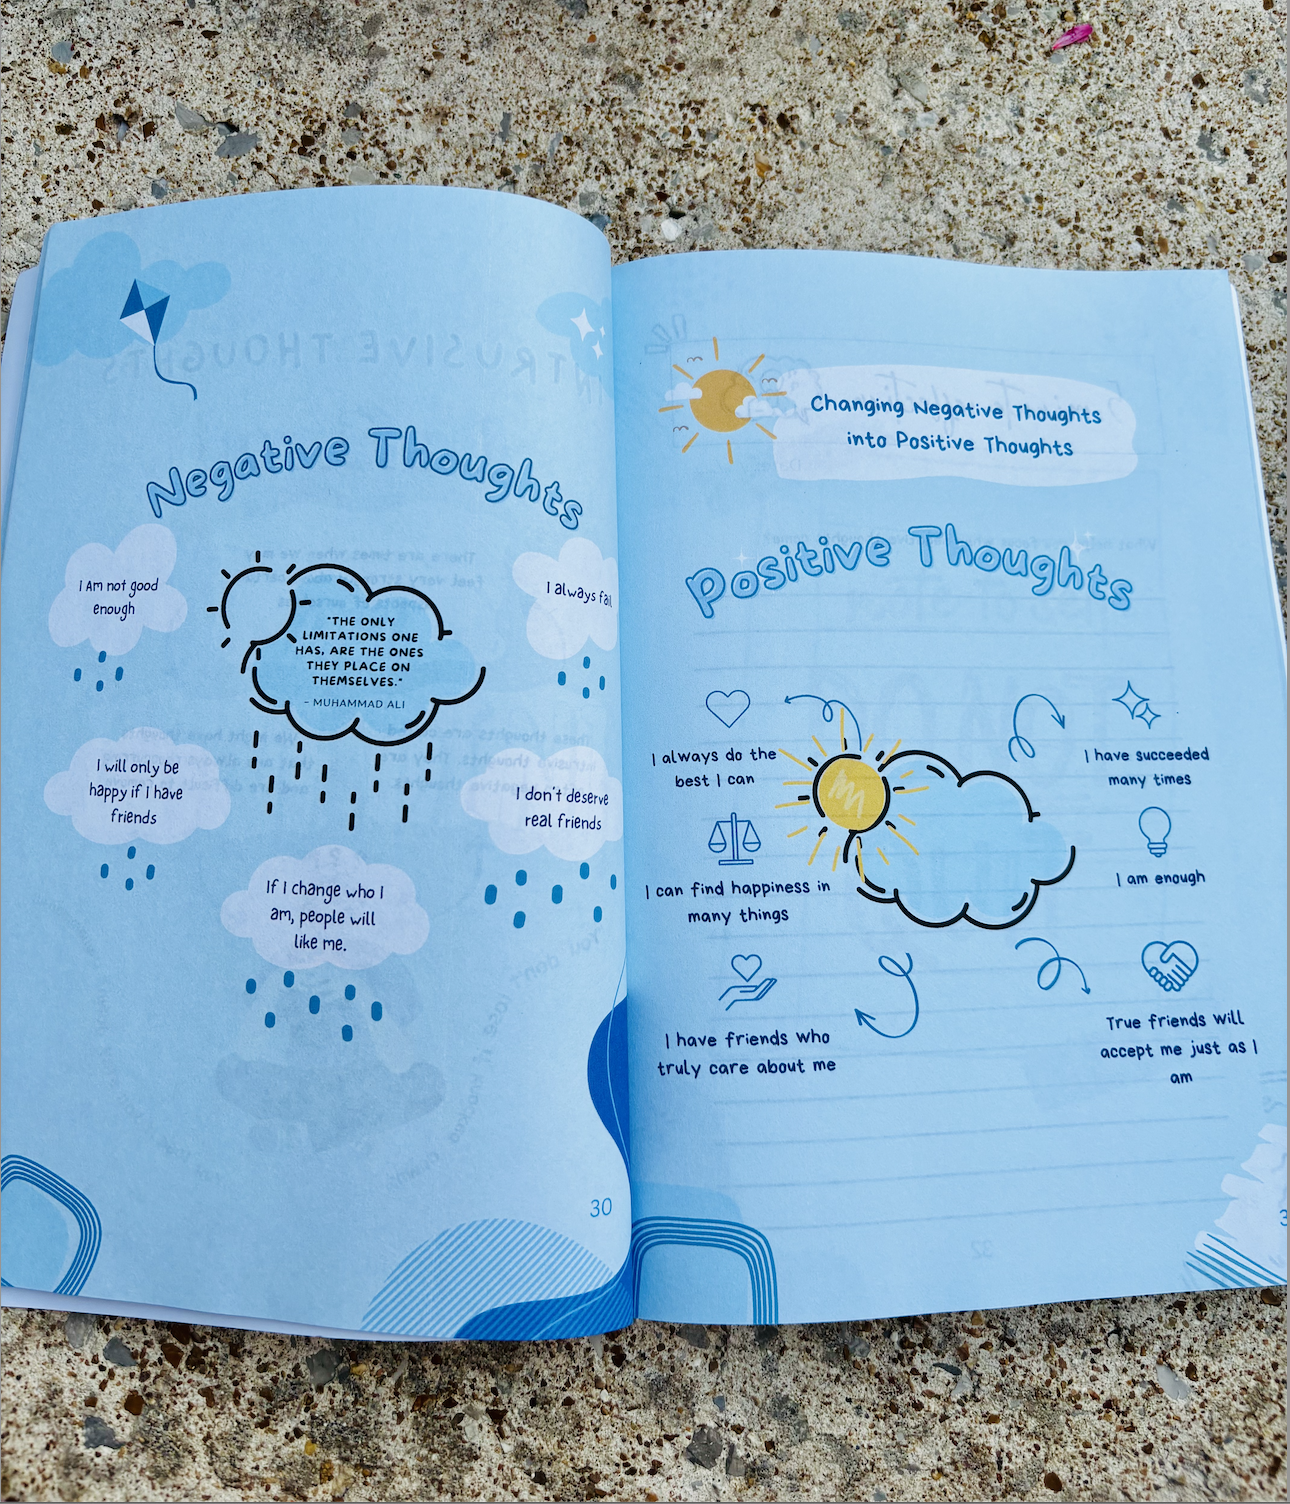 Negative Thoughts
I Am not good
enough
"THE ONLY
LIMITATIONS ONE
HAS, ARE THE ONES
THEY PLACE ON
THEMSELVES."
- MUHAMMAD ALI
I always fail
I will only be
happy if I have
friends
I don't deserve
real friends
If I change who I
am, people will
like me.
30
Changing Negative Thoughts
into Positive Thoughts
Positive Thoughts
I always do the
best I can
I have succeeded
many times
I can find happiness in
many things
I am enough
I have friends who
truly care about me
True friends will
accept me just as I
am